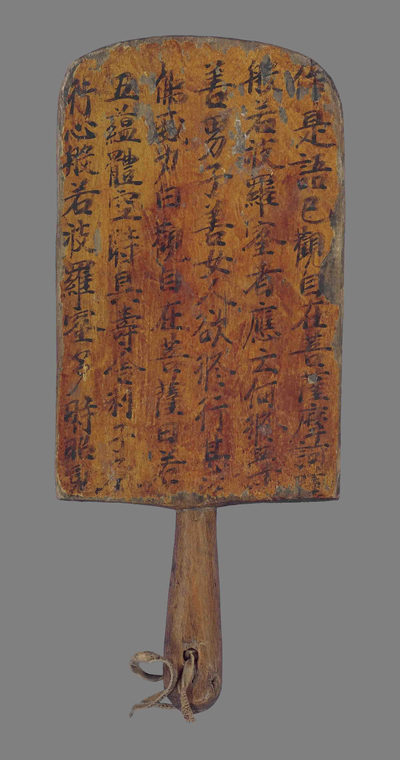 行心般若波羅蜜多時照見
五蘊體空時具壽舍利子
佛威力白觀自在菩薩曰若
善男子善女人欲修行甚深
般若波羅蜜者應云何修學
作是語已觀自在菩薩摩訶薩